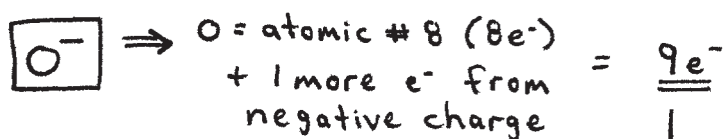 O⁻ ⇒ O = atomic # 8 (8e⁻)
+ 1 more e⁻ from = 9e⁻
negative charge